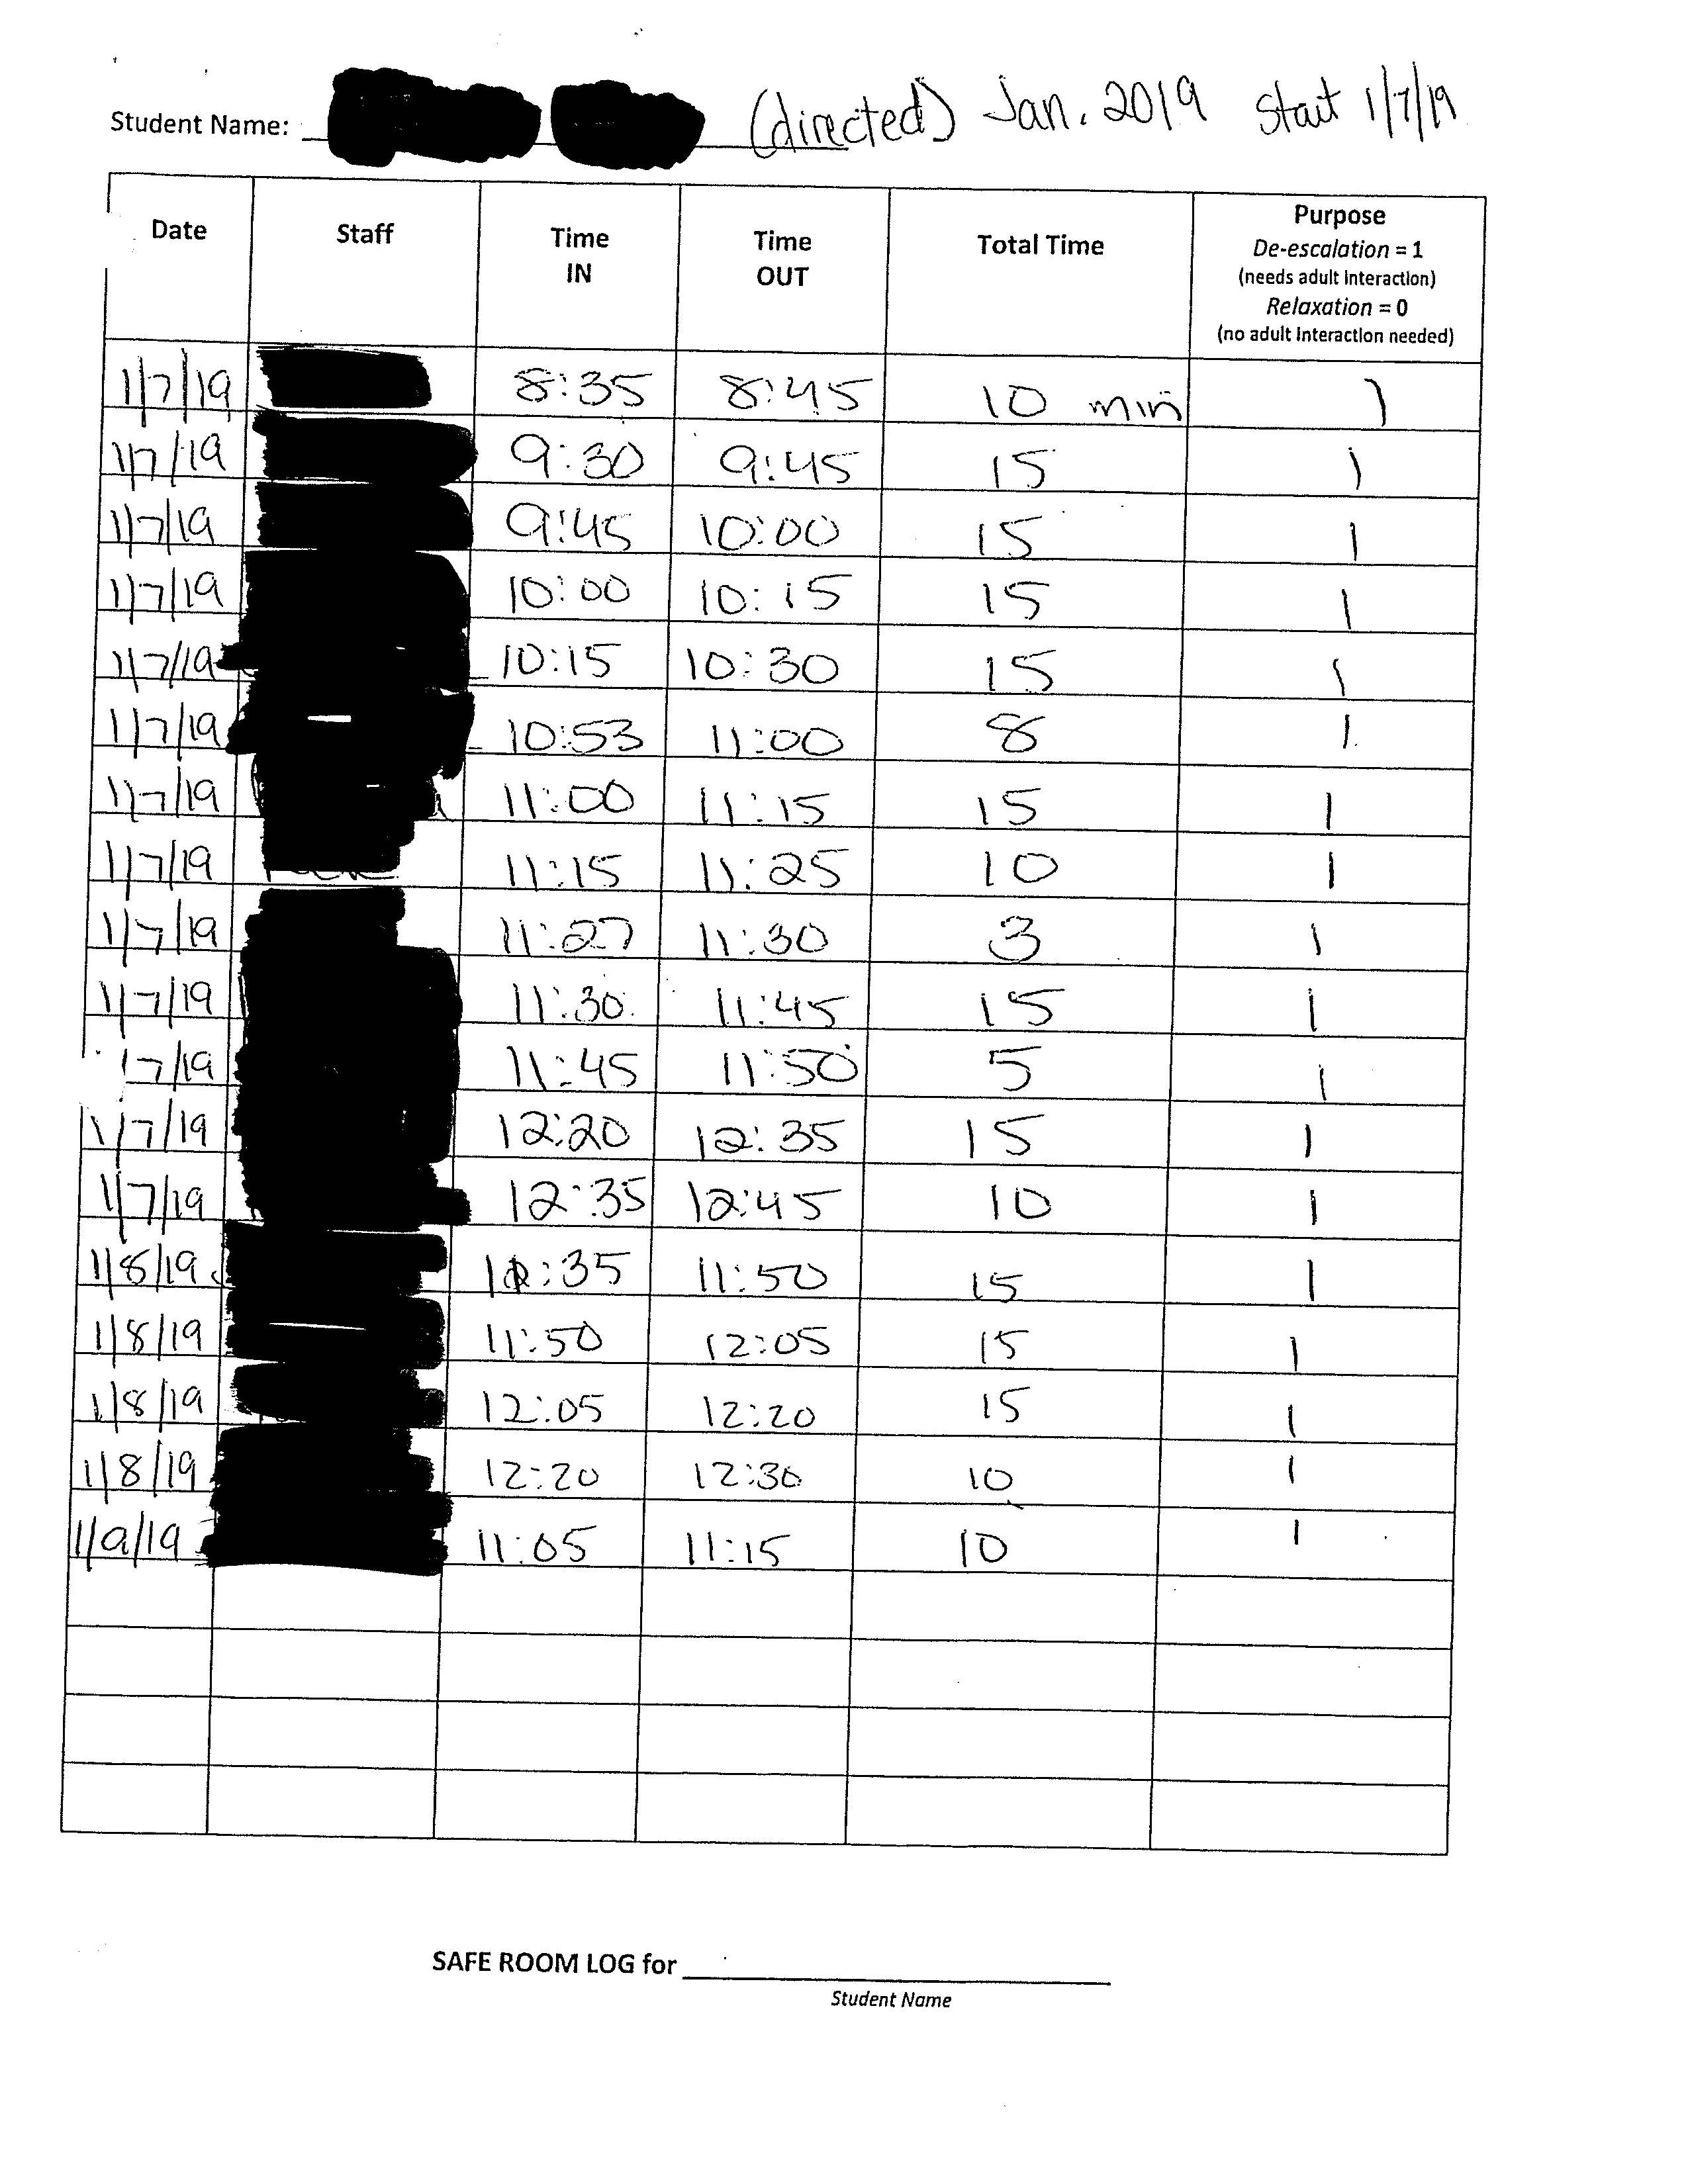 Student Name: (directed) Jan. 2019 Start 1/7/19
Date Staff Time IN Time OUT Total Time Purpose
De-escalation = 1
(needs adult interaction)
Relaxation = 0
(no adult interaction needed)
1/7/19 8:35 8:45 10 min 1
1/7/19 9:30 9:45 15 1
1/7/19 9:45 10:00 15 1
1/7/19 10:00 10:15 15 1
1/7/19 10:15 10:30 15 1
1/7/19 10:53 11:00 8 1
1/7/19 11:00 11:15 15 1
1/7/19 11:15 11:25 10 1
1/7/19 11:27 11:30 3 1
1/7/19 11:30 11:45 15 1
17/19 11:45 11:50 5 1
1/7/19 12:20 12:35 15 1
1/7/19 12:35 12:45 10 1
1/8/19 11:35 11:50 15 1
1/8/19 11:50 12:05 15 1
1/8/19 12:05 12:20 15 1
1/8/19 12:20 12:30 10 1
1/9/19 11:05 11:15 10 1
SAFE ROOM LOG for
Student Name